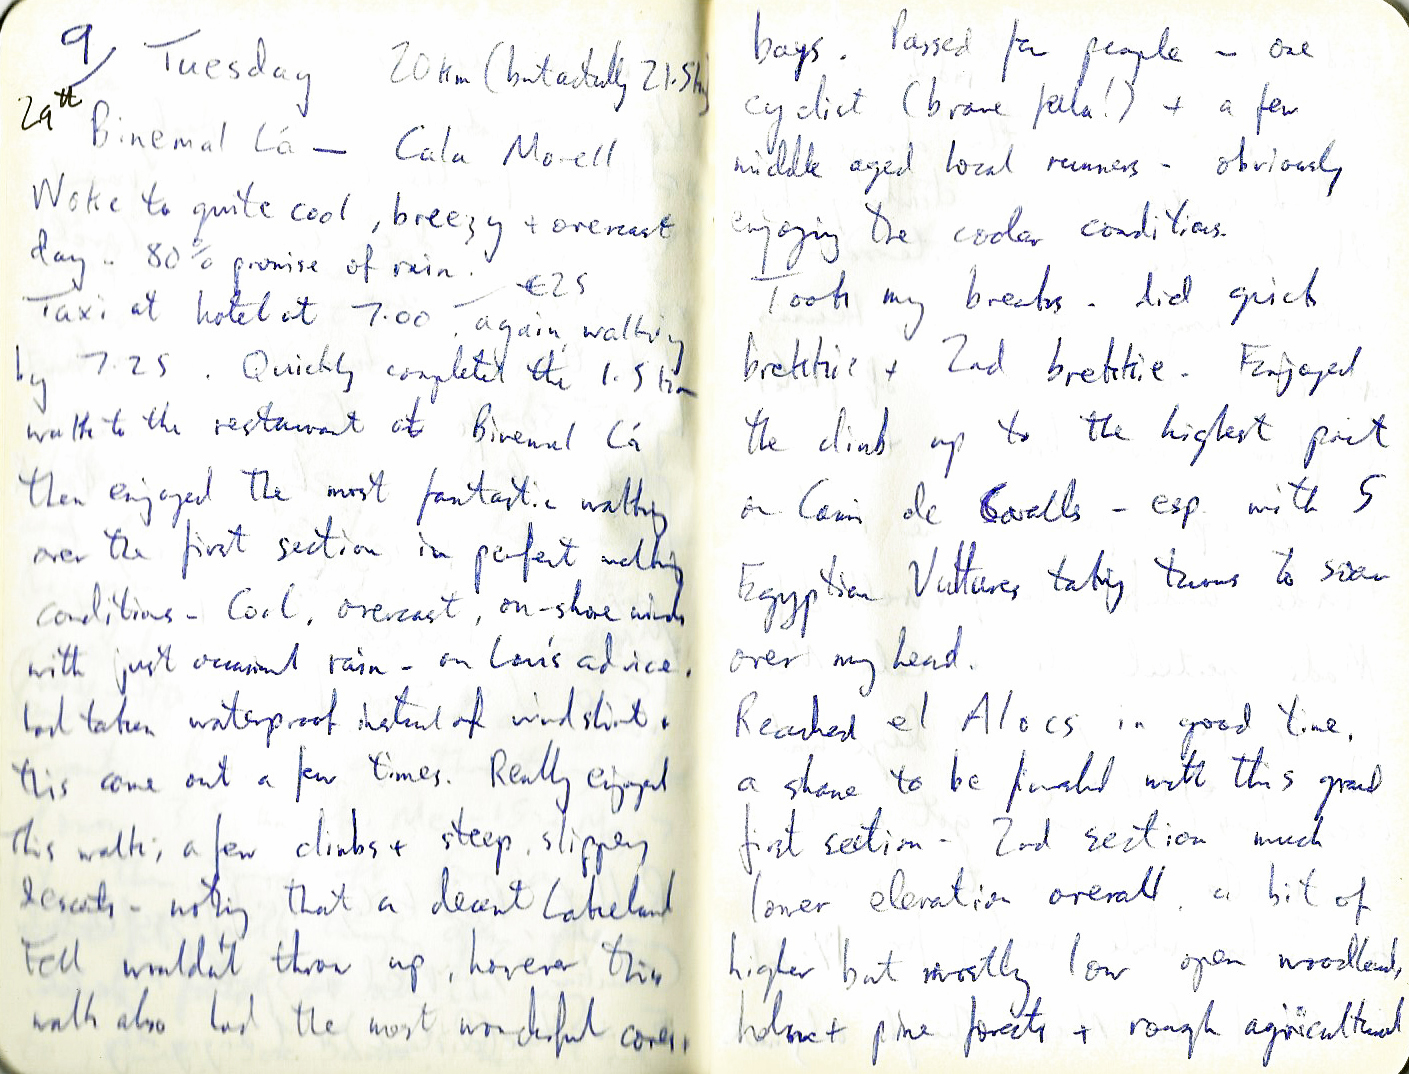 9, Tuesday 20km (but actually 21.5km)
29th Binemal Lá — Cala Morell
Woke to quite cool, breezy + overcast
day - 80% promise of rain.
Taxi at hotel at 7.00 - €25 again, walking
by 7.25. Quickly completed the 1.5 km
walk to the restaurant at Binemal Lá
then enjoyed the most fantastic walking
over the first section in perfect walking
conditions - Cool, overcast, on-shore winds
with just occasional rain - on Lou's advice,
had taken waterproof instead of windshirt.
this came out a few times. Really enjoyed
this walk; a few climbs + steep, slippery
descents - noting that a decent Lakeland
Fell wouldn't throw up, however this
walk also had the most wonderful coves,
bays. Passed few people - one
cyclist (brave fella!) + a few
middle aged local runners - obviously
enjoying the cooler conditions.
Took my breaks - did quick
brekkie + 2nd brekkie. Enjoyed
the climb up to the highest point
on Cami de Cavalls - esp with 5
Egyptian Vultures taking turns to soar
over my head.
Reached el Alocs in good time,
a shame to be finished with this grand
first section - 2nd section much
lower elevation overall, a bit of
higher but mostly low open woodland,
holm + pine forests + rough agricultural